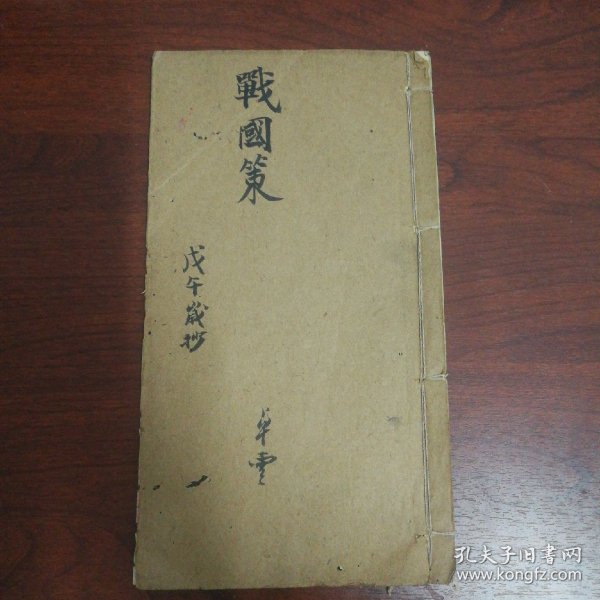 戰國策
戊午歲抄
華雲
孔夫子旧書网
www.kongfz.com